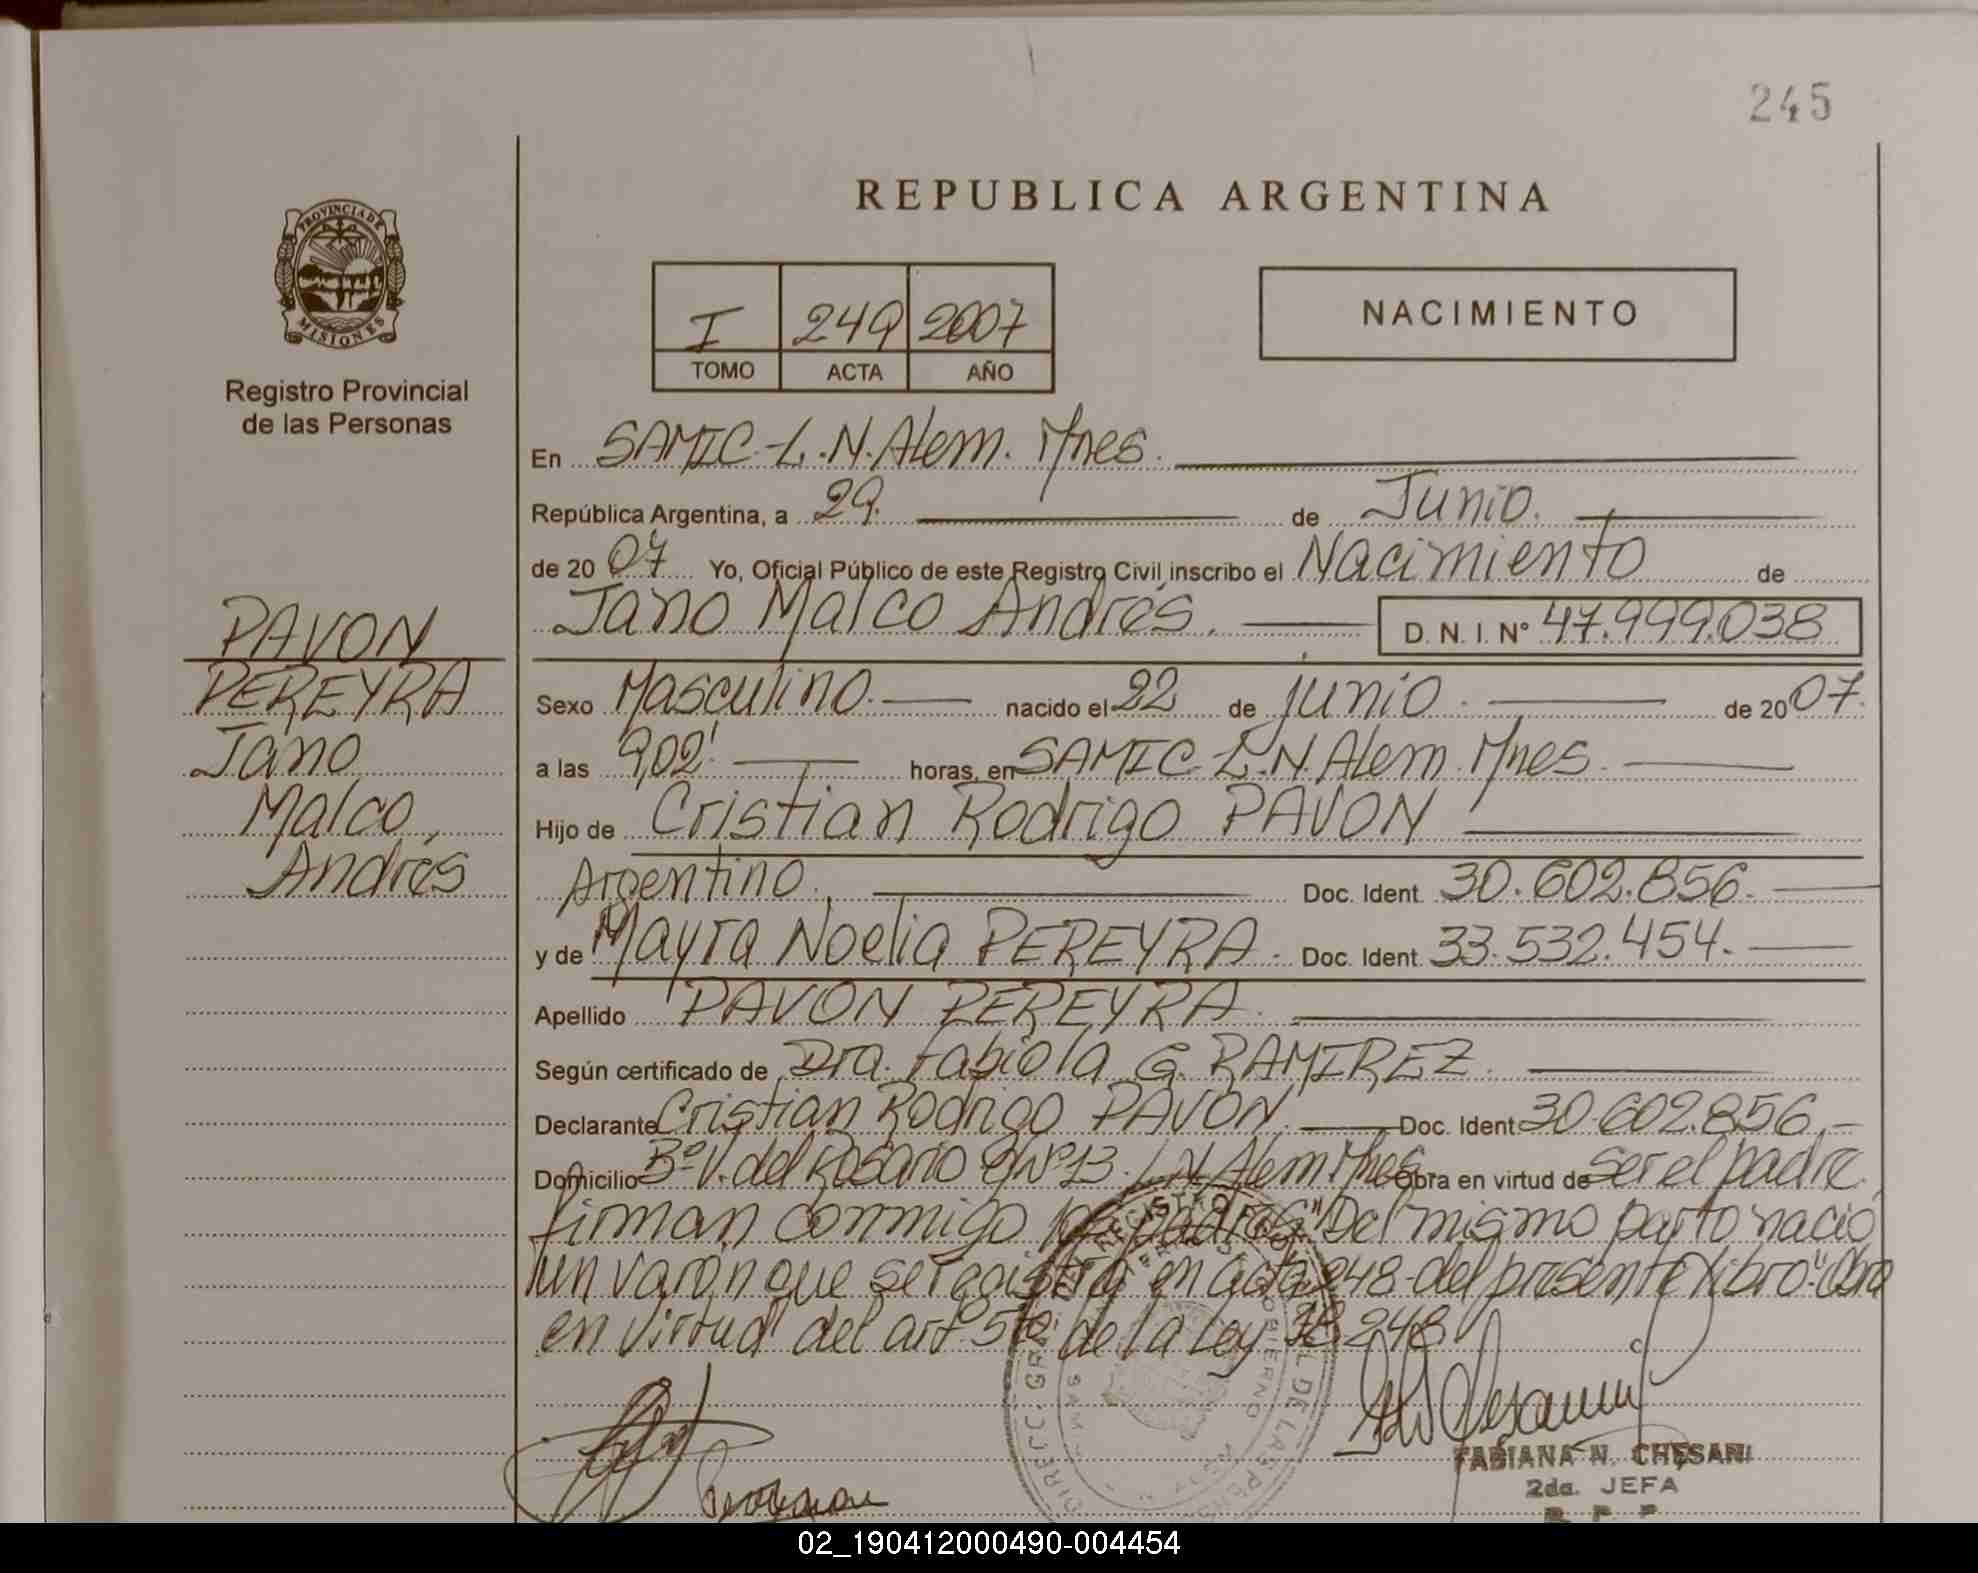 245
REPUBLICA ARGENTINA
PROVINCIA DE
MISIONES
Registro Provincial
de las Personas
I 249 2007
TOMO ACTA AÑO
NACIMIENTO
En SAMIC-L.N.Alem. Mnes.
República Argentina, a 29. de Junio.
de 2007 Yo, Oficial Público de este Registro Civil inscribo el Nacimiento de
Jano Malco Andrés. D. N. I. Nº 47.999.038
PAVON
PEREYRA
Jano
Malco,
Andrés
Sexo Masculino. nacido el 22 de junio. de 2007.
a las 902' horas, en SAMIC-L.N.Alem.Mnes.
Hijo de Cristian Rodrigo PAVON
Argentino. Doc. Ident. 30.602.856.
y de Mayra Noelia PEREYRA. Doc. Ident. 33.532.454.
Apellido PAVON PEREYRA.
Según certificado de Dra. Fabiola G. RAMIREZ.
Declarante Cristian Rodrigo PAVON. Doc. Ident. 30.602.856.
Domicilio Bº V. del Rosario Nº13. L.N.Alem.Mnes. Obra en virtud de ser el padre
firman conmigo los padres "Del mismo parto nació
un varón que se registra en acta 248-del presente libro." Obra
en virtud del art 5to de la Ley 18.248
FABIANA N. CHESANI
2da. JEFA
R. P. P.
02_190412000490-004454